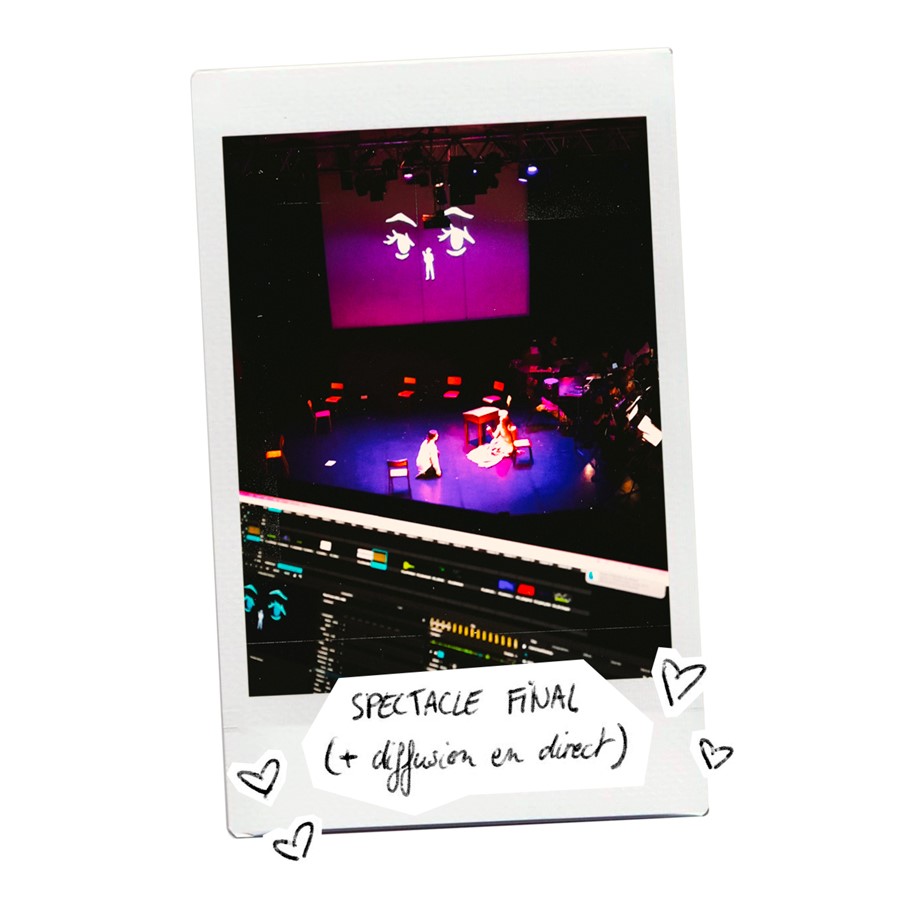 SPECTACLE FINAL
(+ diffusion en direct)